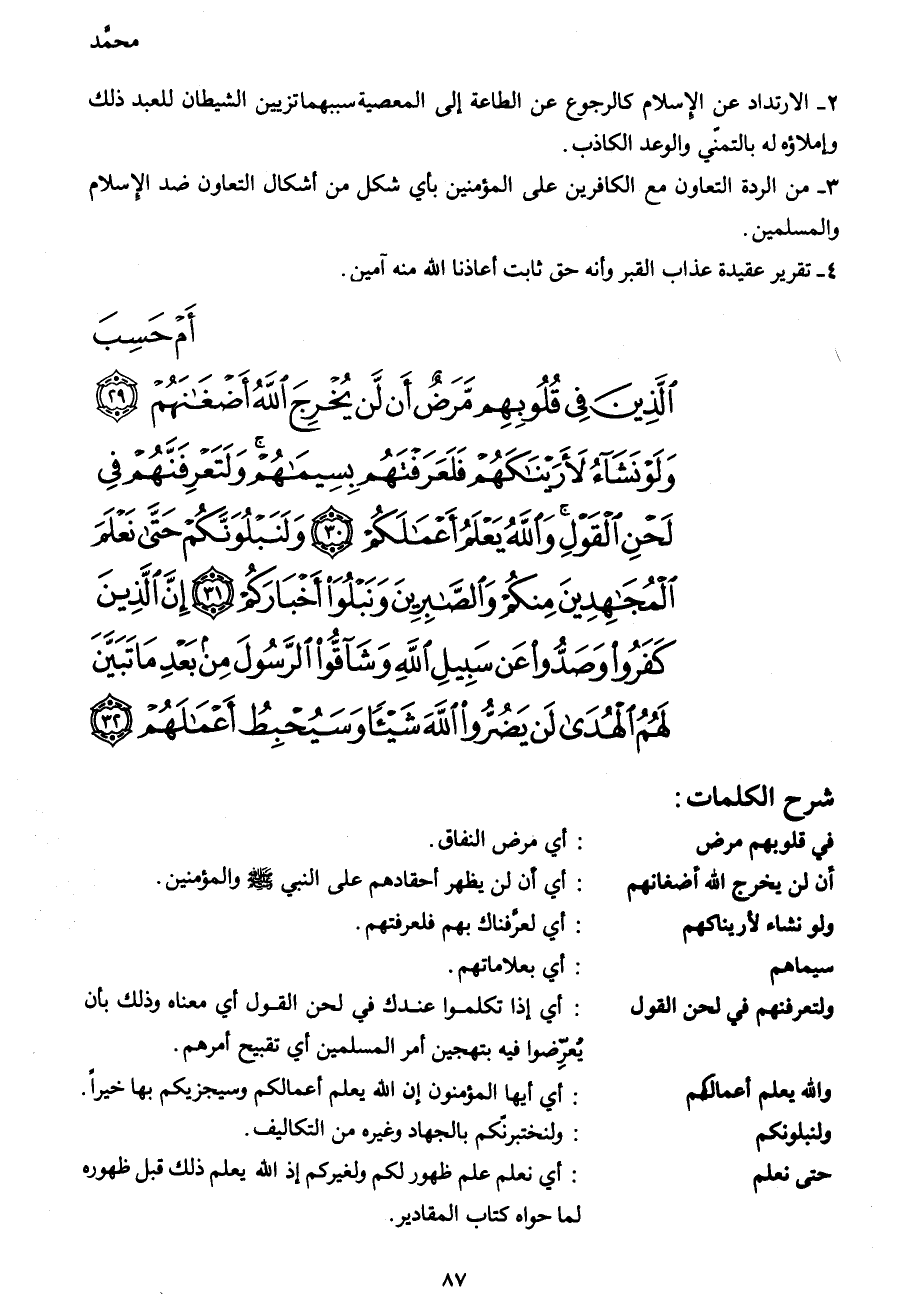 محمَّد
٢ـ الارتداد عن الإسلام كالرجوع عن الطاعة إلى المعصية سببهما تزيين الشيطان للعبد ذلك
وإملاؤه له بالتمنّي والوعد الكاذب.
٣ـ من الردة التعاون مع الكافرين على المؤمنين بأي شكل من أشكال التعاون ضد الإسلام
والمسلمين.
٤ـ تقرير عقيدة عذاب القبر وأنه حق ثابت أعاذنا الله منه آمين.
أَمْ حَسِبَ
ٱلَّذِينَ فِى قُلُوبِهِم مَّرَضٌ أَن لَّن يُخْرِجَ ٱللَّهُ أَضْغَٰنَهُمْ ﴿٢٩﴾
وَلَوْ نَشَآءُ لَأَرَيْنَٰكَهُمْ فَلَعَرَفْتَهُم بِسِيمَٰهُمْ ۚ وَلَتَعْرِفَنَّهُمْ فِى
لَحْنِ ٱلْقَوْلِ ۚ وَٱللَّهُ يَعْلَمُ أَعْمَٰلَكُمْ ﴿٣٠﴾ وَلَنَبْلُوَنَّكُمْ حَتَّىٰ نَعْلَمَ
ٱلْمُجَٰهِدِينَ مِنكُمْ وَٱلصَّٰبِرِينَ وَنَبْلُوَا۟ أَخْبَارَكُمْ ﴿٣١﴾ إِنَّ ٱلَّذِينَ
كَفَرُوا۟ وَصَدُّوا۟ عَن سَبِيلِ ٱللَّهِ وَشَآقُّوا۟ ٱلرَّسُولَ مِنۢ بَعْدِ مَا تَبَيَّنَ
لَهُمُ ٱلْهُدَىٰ لَن يَضُرُّوا۟ ٱللَّهَ شَيْـًٔا وَسَيُحْبِطُ أَعْمَٰلَهُمْ ﴿٣٢﴾
شرح الكلمات :
في قلوبهم مرض : أي مرض النفاق.
أن لن يخرج الله أضغانهم : أي أن لن يظهر أحقادهم على النبي ﷺ والمؤمنين.
ولو نشاء لأريناكهم : أي لعرَّفناك بهم فلعرفتهم.
سيماهم : أي بعلاماتهم.
ولتعرفنهم في لحن القول : أي إذا تكلموا عندك في لحن القول أي معناه وذلك بأن
يُعرِّضوا فيه بتهجين أمر المسلمين أي تقبيح أمرهم.
والله يعلم أعمالكم : أي أيها المؤمنون إن الله يعلم أعمالكم وسيجزيكم بها خيراً.
ولنبلونكم : ولنختبرنّكم بالجهاد وغيره من التكاليف.
حتى نعلم : أي نعلم علم ظهور لكم ولغيركم إذ الله يعلم ذلك قبل ظهوره
لما حواه كتاب المقادير.
٨٧